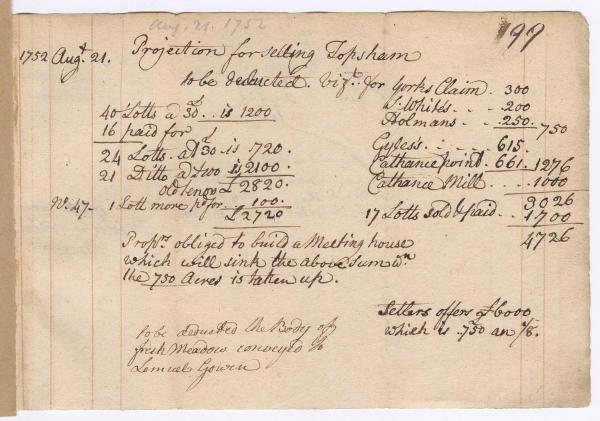 Aug. 21. 1752
199
1752 Augt. 21. Projection for selling Topsham
to be deducted. Vizt. for Yorks Claim. 300
40 Lotts a 30£. is 1200 J. White's . . . 200
16 paid for Holmans . . . 250. 750
24 Lotts. at £30 is 720. Gyless . . . . 615.
21 Ditto a two is 2100. Cathance point. 661. 1276
old tenor £2820. Cathance Mill . . . 1000
No. 47 - 1 Lott more p. for . . 100. 3026
£2720 17 Lotts sold & paid . . 1700
4726
Proprs. obliged to build a Meeting house
which will sink the above Sum wn
the 750 Acres is taken up.
Setlers offers of 6000
which is .750 an 1/8.
to be deducted the Body of
fresh Meadow conveyed to
Lemuel Gowen